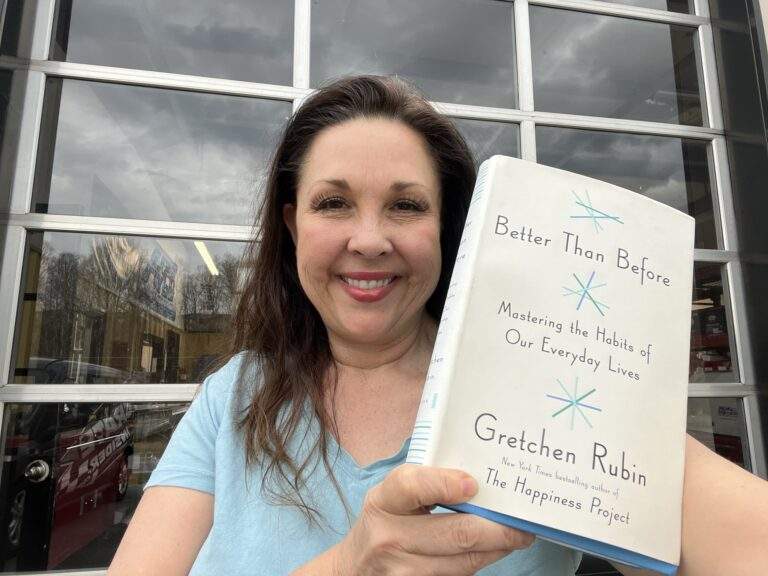 Better Than Before
Mastering the Habits of
Our Everyday Lives
Gretchen Rubin
New York Times bestselling author of
The Happiness Project